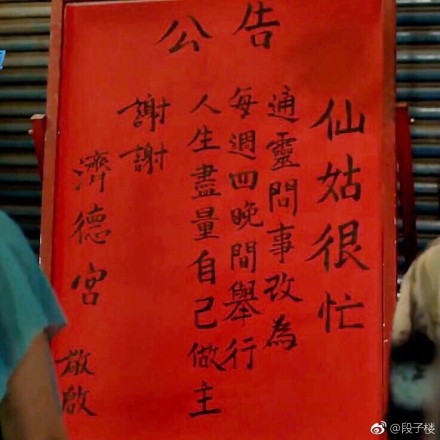 公告
仙姑很忙
通靈問事改為
每週四晚間舉行
人生盡量自己做主
謝謝
濟德宮 敬啟
@段子楼